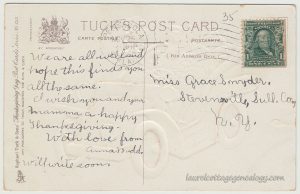 35
TUCK'S POST CARD
CARTE POSTALE
POSTKARTE
(FOR ADDRESS ONLY.)
We are all well and
hope this finds you
all the same.
I wish you and your
mamma a happy
Thanksgiving.
With love from
Anna
will write soon.
Miss Grace Smyder,
Stevensville, Sull. Coy
N. Y.
laurelcottagegenealogy.com